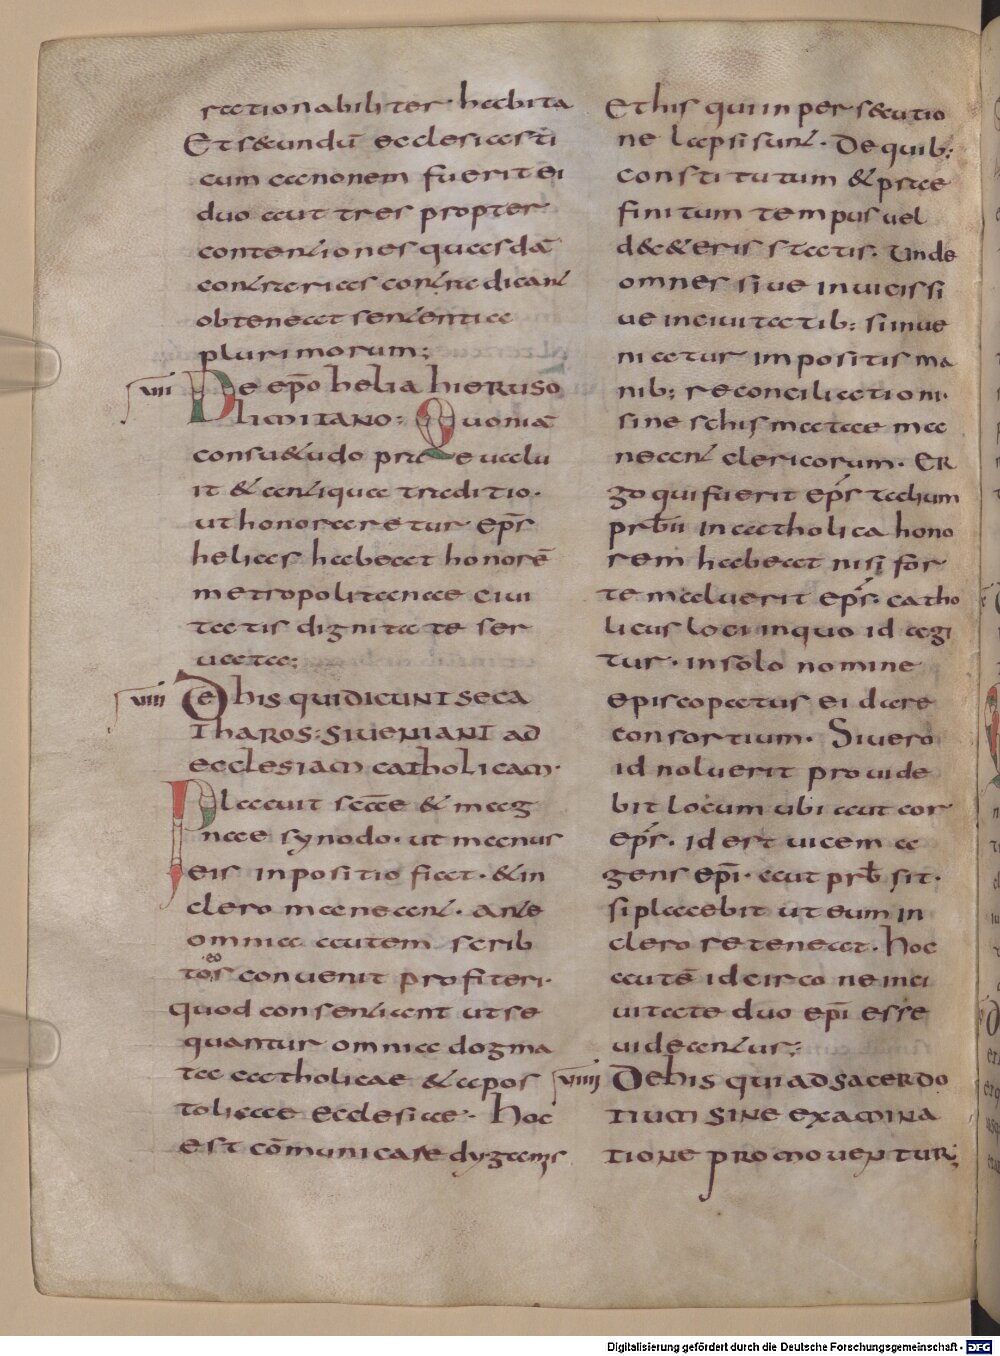 rationabiliter · habita
Et secundū ecclesiasti
cum canonem fuerit ei
duo aut tres propter
contentiones quasdā
contrarias contradicant
obteneat sententia
plurimorum;
viii De epō helia hieruso
limitano: Quoniā
consuetudo prae valu
it & antiqua traditio ·
ut honoraretur ep̄s
helias habeat honorē
metropolitanae civi
tatis dignitate ser
vata;
viiii De his qui dicunt se ca
tharos: si veniant ad
ecclesiam catholicam ·
Placuit scāe & mag
nae synodo · ut manus
eis inpositio fiat · & in
clero maneant · ante
omnia autem scrib
to eos convenit profiteri ·
quod consentiant ut se
quantur omnia dogma
ta catholicae & apos
tolicae ecclesiae · hoc
est cōmunicare dygamis
Et his qui in persecutio
ne lapsi sunt · De quib;
constitutum & prae
finitum tempus vel
de&eris statis · Unde
omnes sive in vicis si
ve in civitatib; si inve
niatur impositis ma
nib; reconciliationi ·
sine schismatae ma
neant clericorum · Er
go qui fuerit ep̄s tachum
prb̄ii in catholica hono
rem habeat nisi for
te maluerit ep̄s · catho
licus loci in quo id agi
tur · in solo nomine
episcopatus ei dare
consortium · Si vero
id noluerit provide
bit locum ubi aut cor
ep̄s · id est vicem a
gens epī · aut prb̄ sit ·
si placebit ut eum in
clero reteneat · hoc
autē idcirco ne in ci
vitate duo epī esse
videantur;
viiiij De his qui ad sacerdo
tium sine examina
tione promoventur;
Digitalisierung gefördert durch die Deutsche Forschungsgemeinschaft - DFG